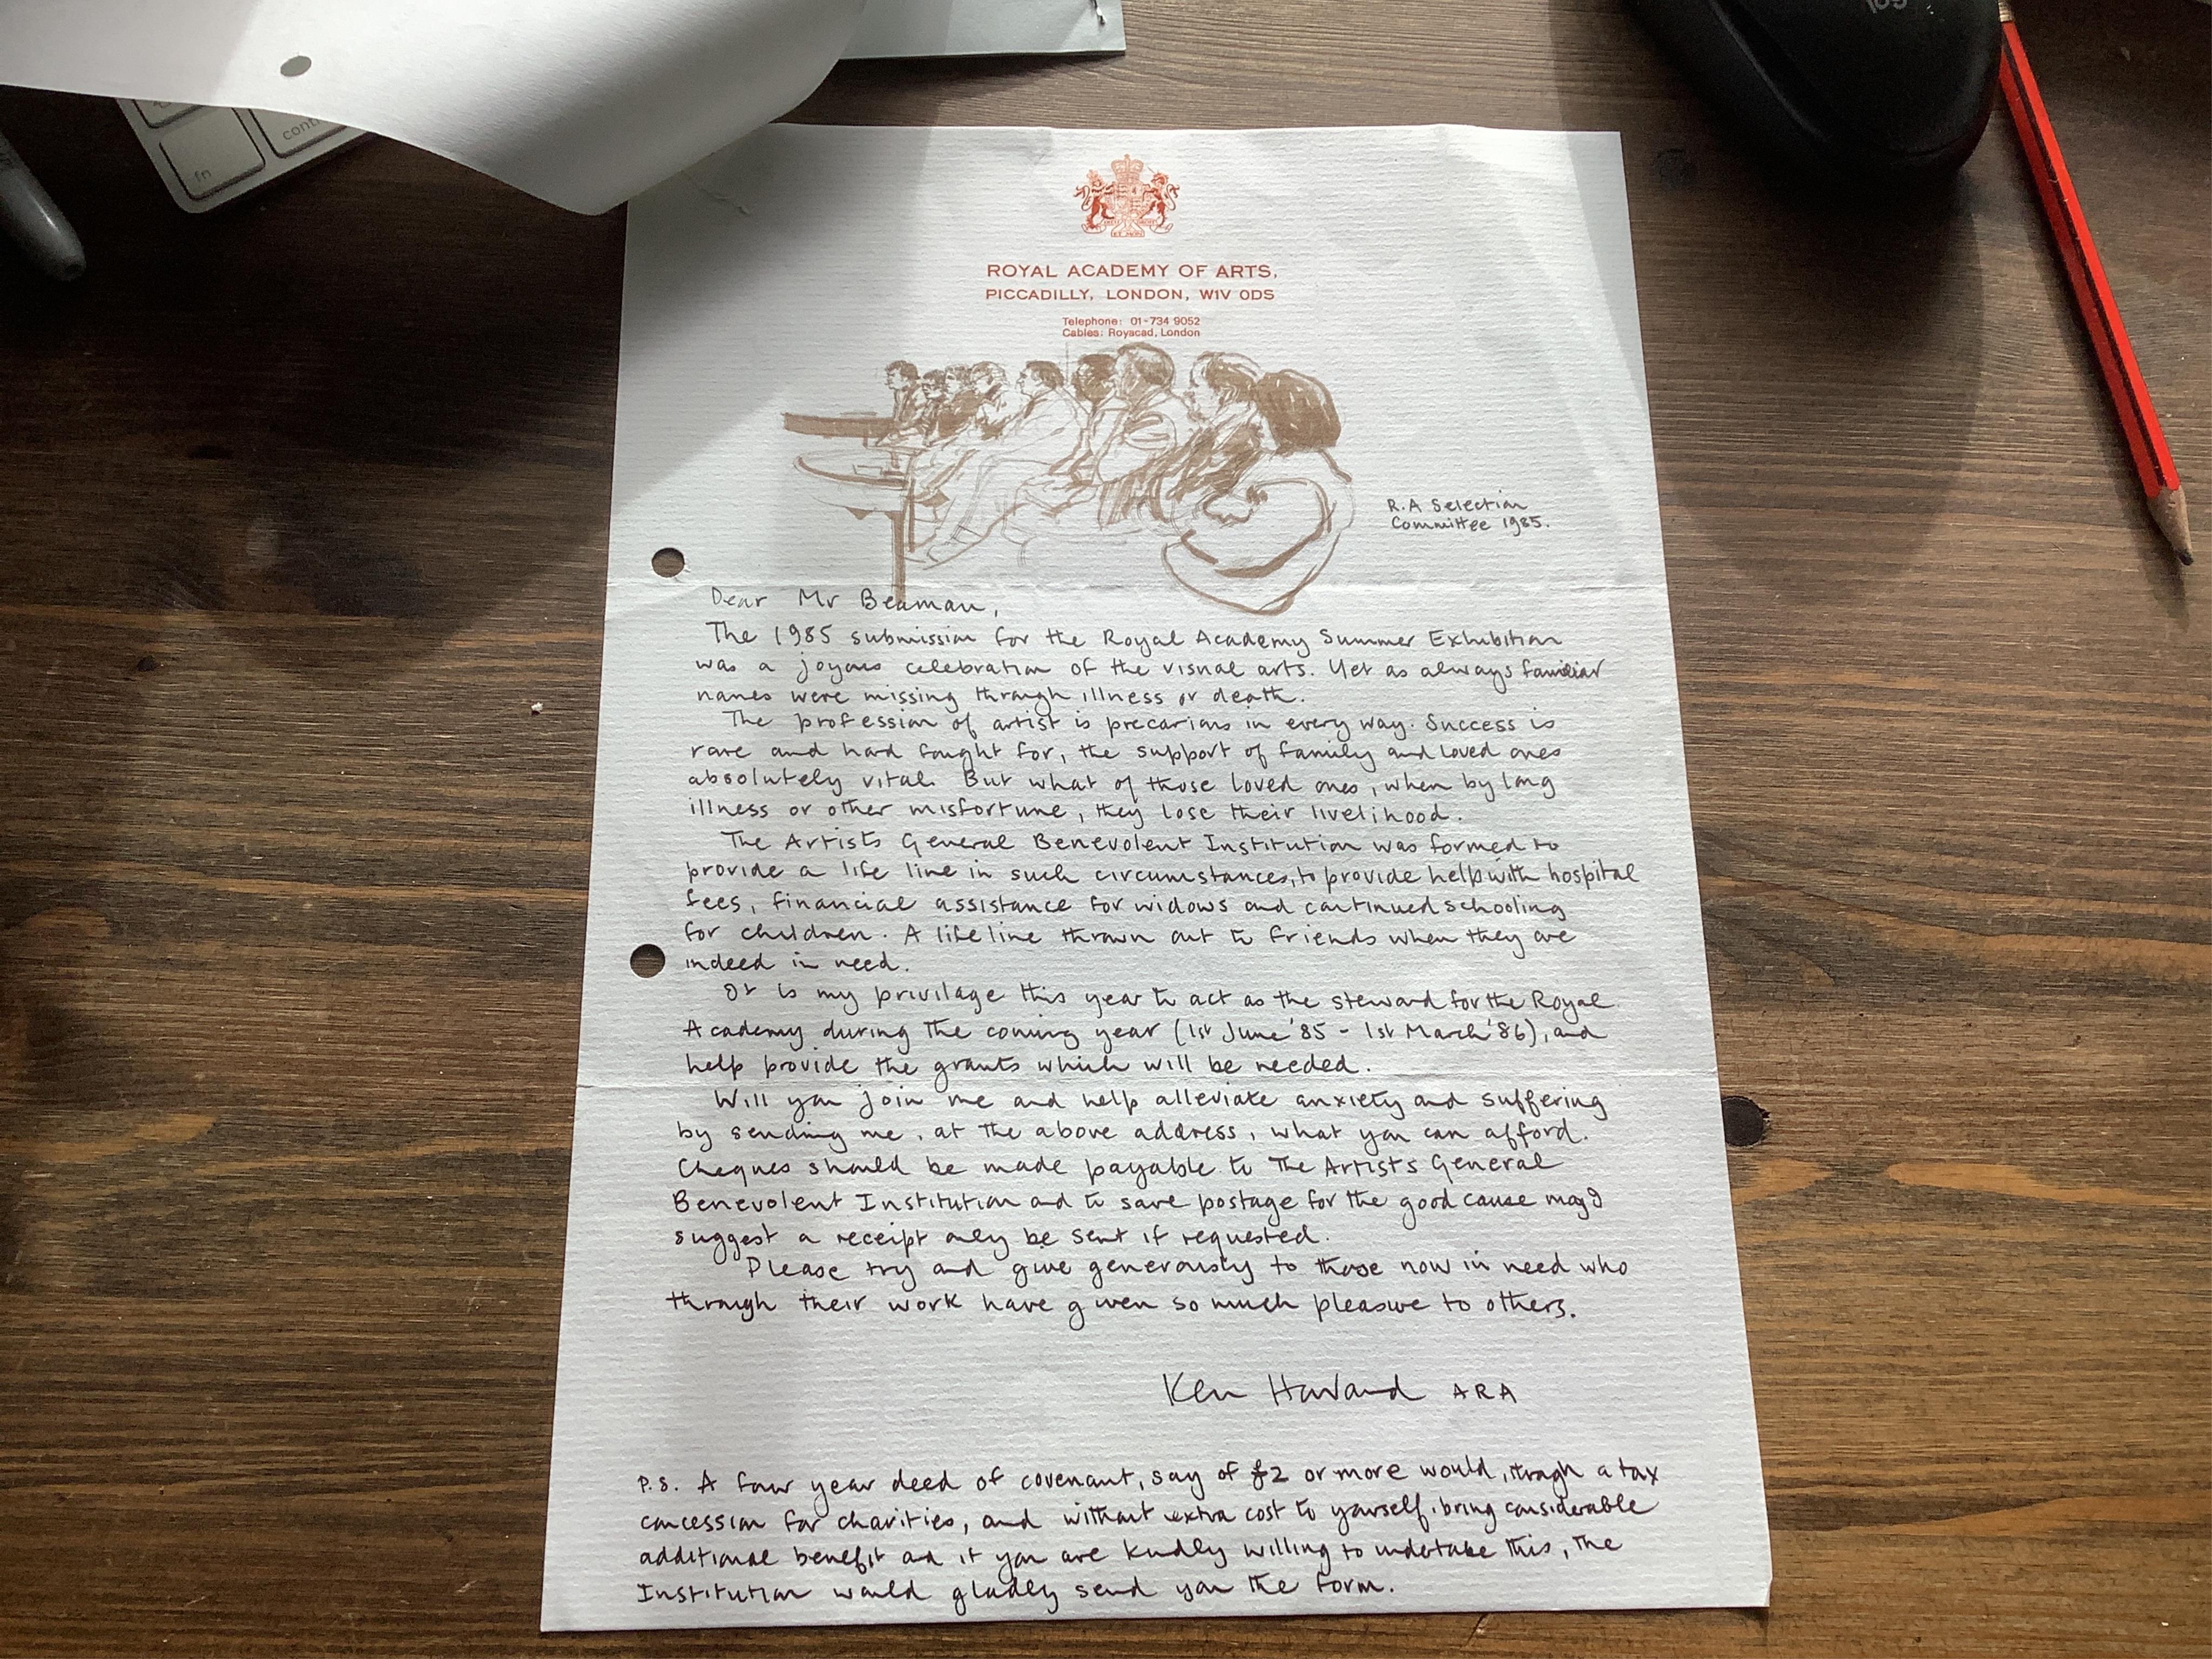 fn
ROYAL ACADEMY OF ARTS,
PICCADILLY, LONDON, W1V 0DS
Telephone: 01-734 9052
Cables: Royacad, London
R.A Selection
Committee 1985.
Dear Mr Beaman,
The 1985 submission for the Royal Academy Summer Exhibition
was a joyous celebration of the visual arts. Yet as always familiar
names were missing through illness or death.
The profession of artist is precarious in every way. Success is
rare and hard fought for, the support of family and loved ones
absolutely vital. But what of those loved ones, when by long
illness or other misfortune, they lose their livelihood.
The Artists General Benevolent Institution was formed to
provide a life line in such circumstances, to provide help with hospital
fees, financial assistance for widows and continued schooling
for children. A life line thrown out to friends when they are
indeed in need.
It is my privilage this year to act as the steward for the Royal
Academy during the coming year (1st June '85 - 1st March '86), and
help provide the grants which will be needed.
Will you join me and help alleviate anxiety and suffering
by sending me, at the above address, what you can afford.
Cheques should be made payable to The Artists General
Benevolent Institution and to save postage for the good cause may I
suggest a receipt only be sent if requested.
Please try and give generously to those now in need who
through their work have given so much pleasure to others.
Ken Howard ARA
P.S. A four year deed of covenant, say of £2 or more would, through a tax
concession for charities, and without extra cost to yourself, bring considerable
additional benefit and if you are kindly willing to undertake this, the
Institution would gladly send you the form.